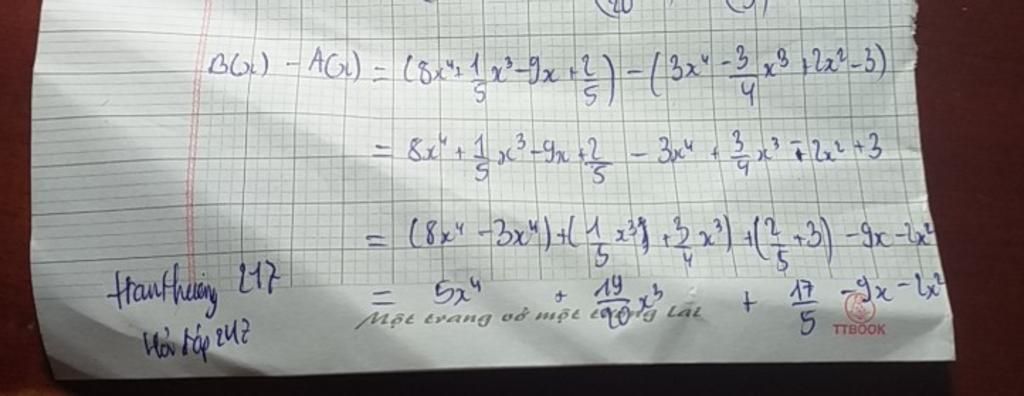 20
B(x) - A(x) = (8x⁴ + 1/5 x³ - 9x + 2/5) - (3x⁴ - 3/4 x³ + 2x² - 3)
= 8x⁴ + 1/5 x³ - 9x + 2/5 - 3x⁴ + 3/4 x³ - 2x² + 3
= (8x⁴ - 3x⁴) + (1/5 x³ + 3/4 x³) + (2/5 + 3) - 9x - 2x²
= 5x⁴ + 19/20 x³ + 17/5 - 9x - 2x²
247
Hỏi đáp 247
Một trang vở một tương lai
TTBOOK